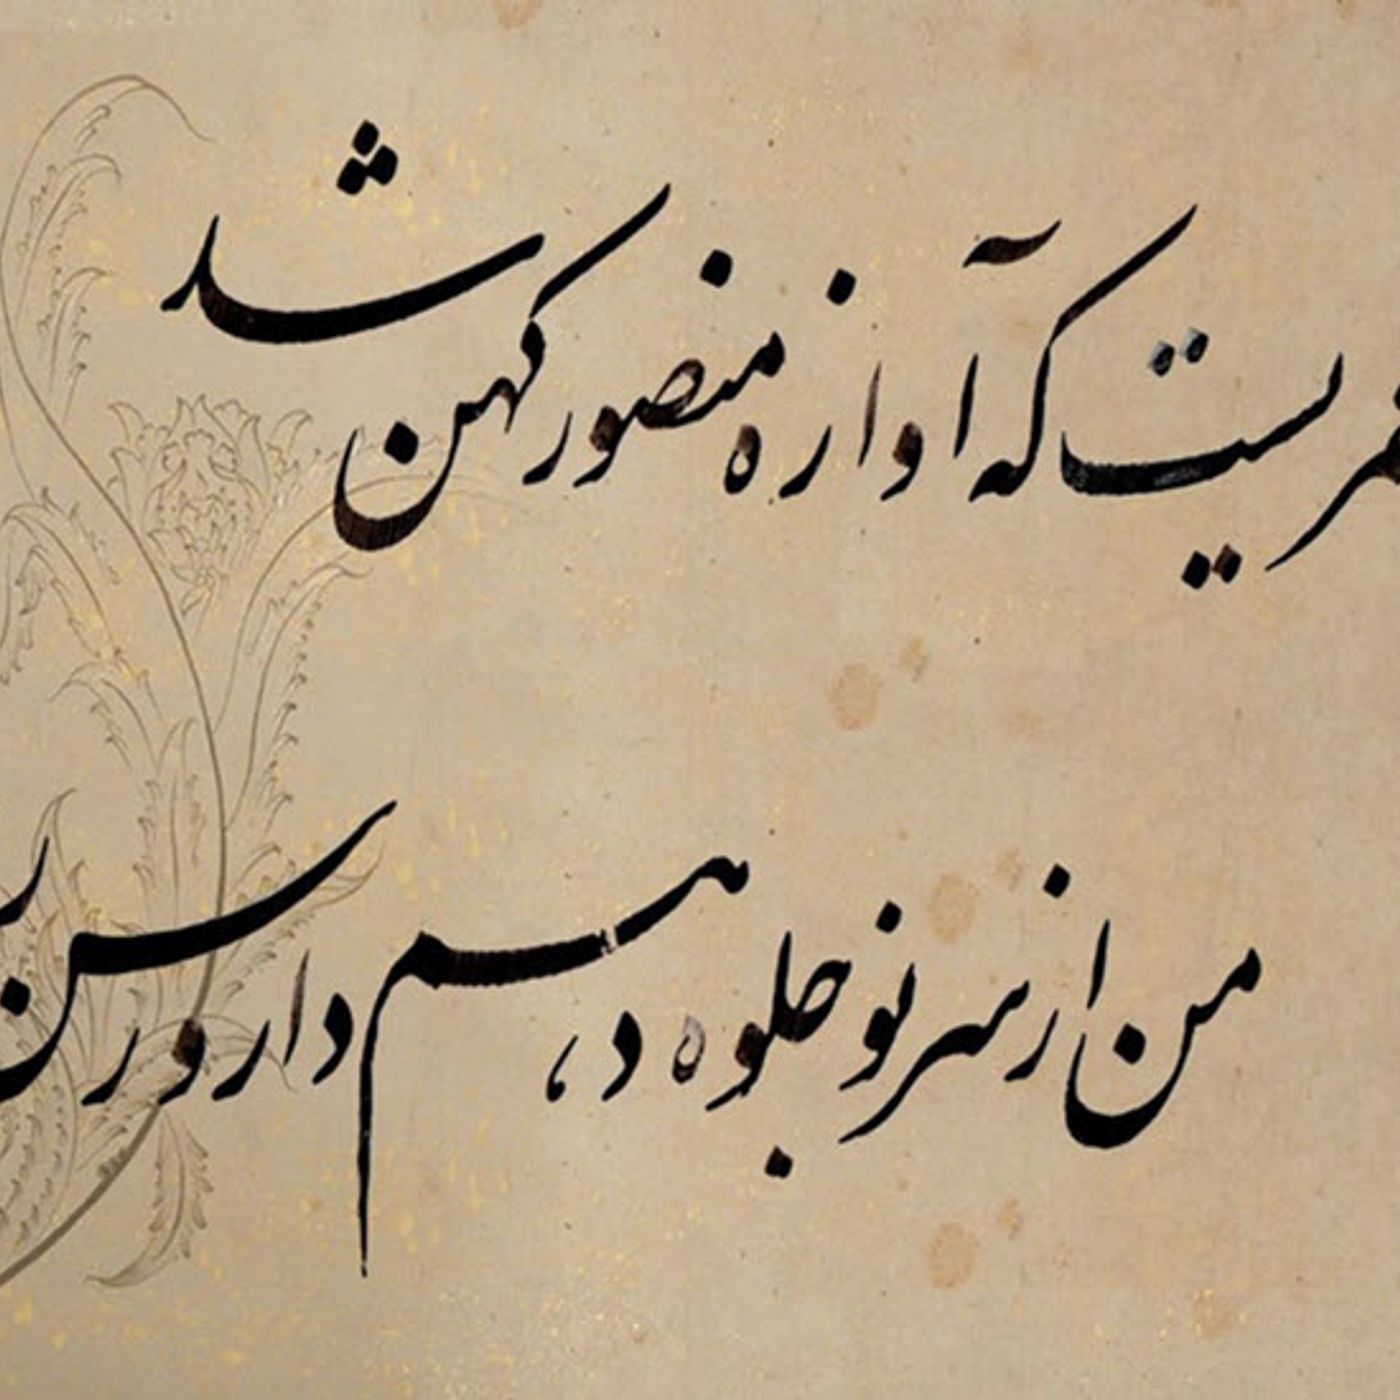 عمریست که آوازه منصور کهن شد
من از سر نو جلوه دهم دار و رسن